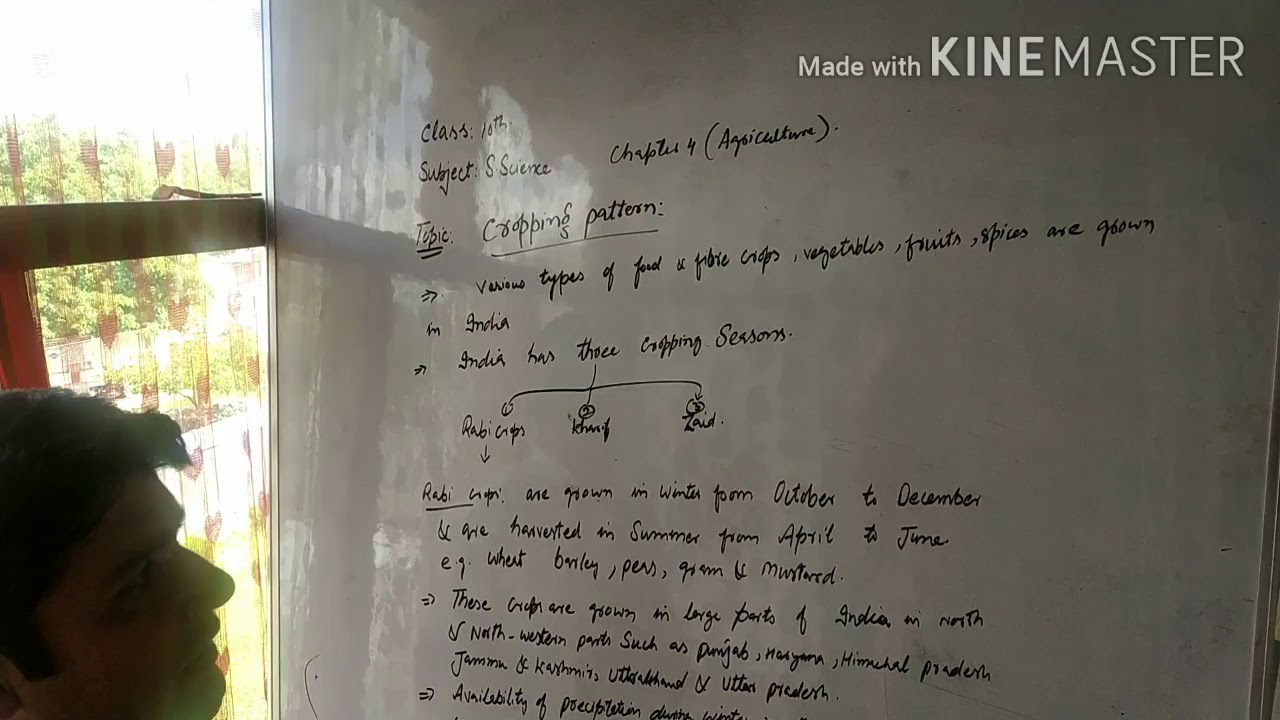 Made with KINEMASTER
Class: 10th.
Subject: S. Science
Chapter 4 (Agriculture).
Topic: Cropping pattern:
⇒ various types of food & fibre crops, vegetables, fruits, spices are grown
in India
⇒ India has three cropping Seasons.
① Rabi crops ② Kharif ③ Zaid.
Rabi crops: are grown in winter from October to December
& are harvested in Summer from April to June
e.g. wheat barley, peas, gram & mustard.
⇒ These crops are grown in large parts of India in north
& North-western parts such as punjab, Haryana, Himachal pradesh
Jammu & Kashmir, Uttarakhand & Uttar pradesh.
⇒ Availability of precipitation during winter